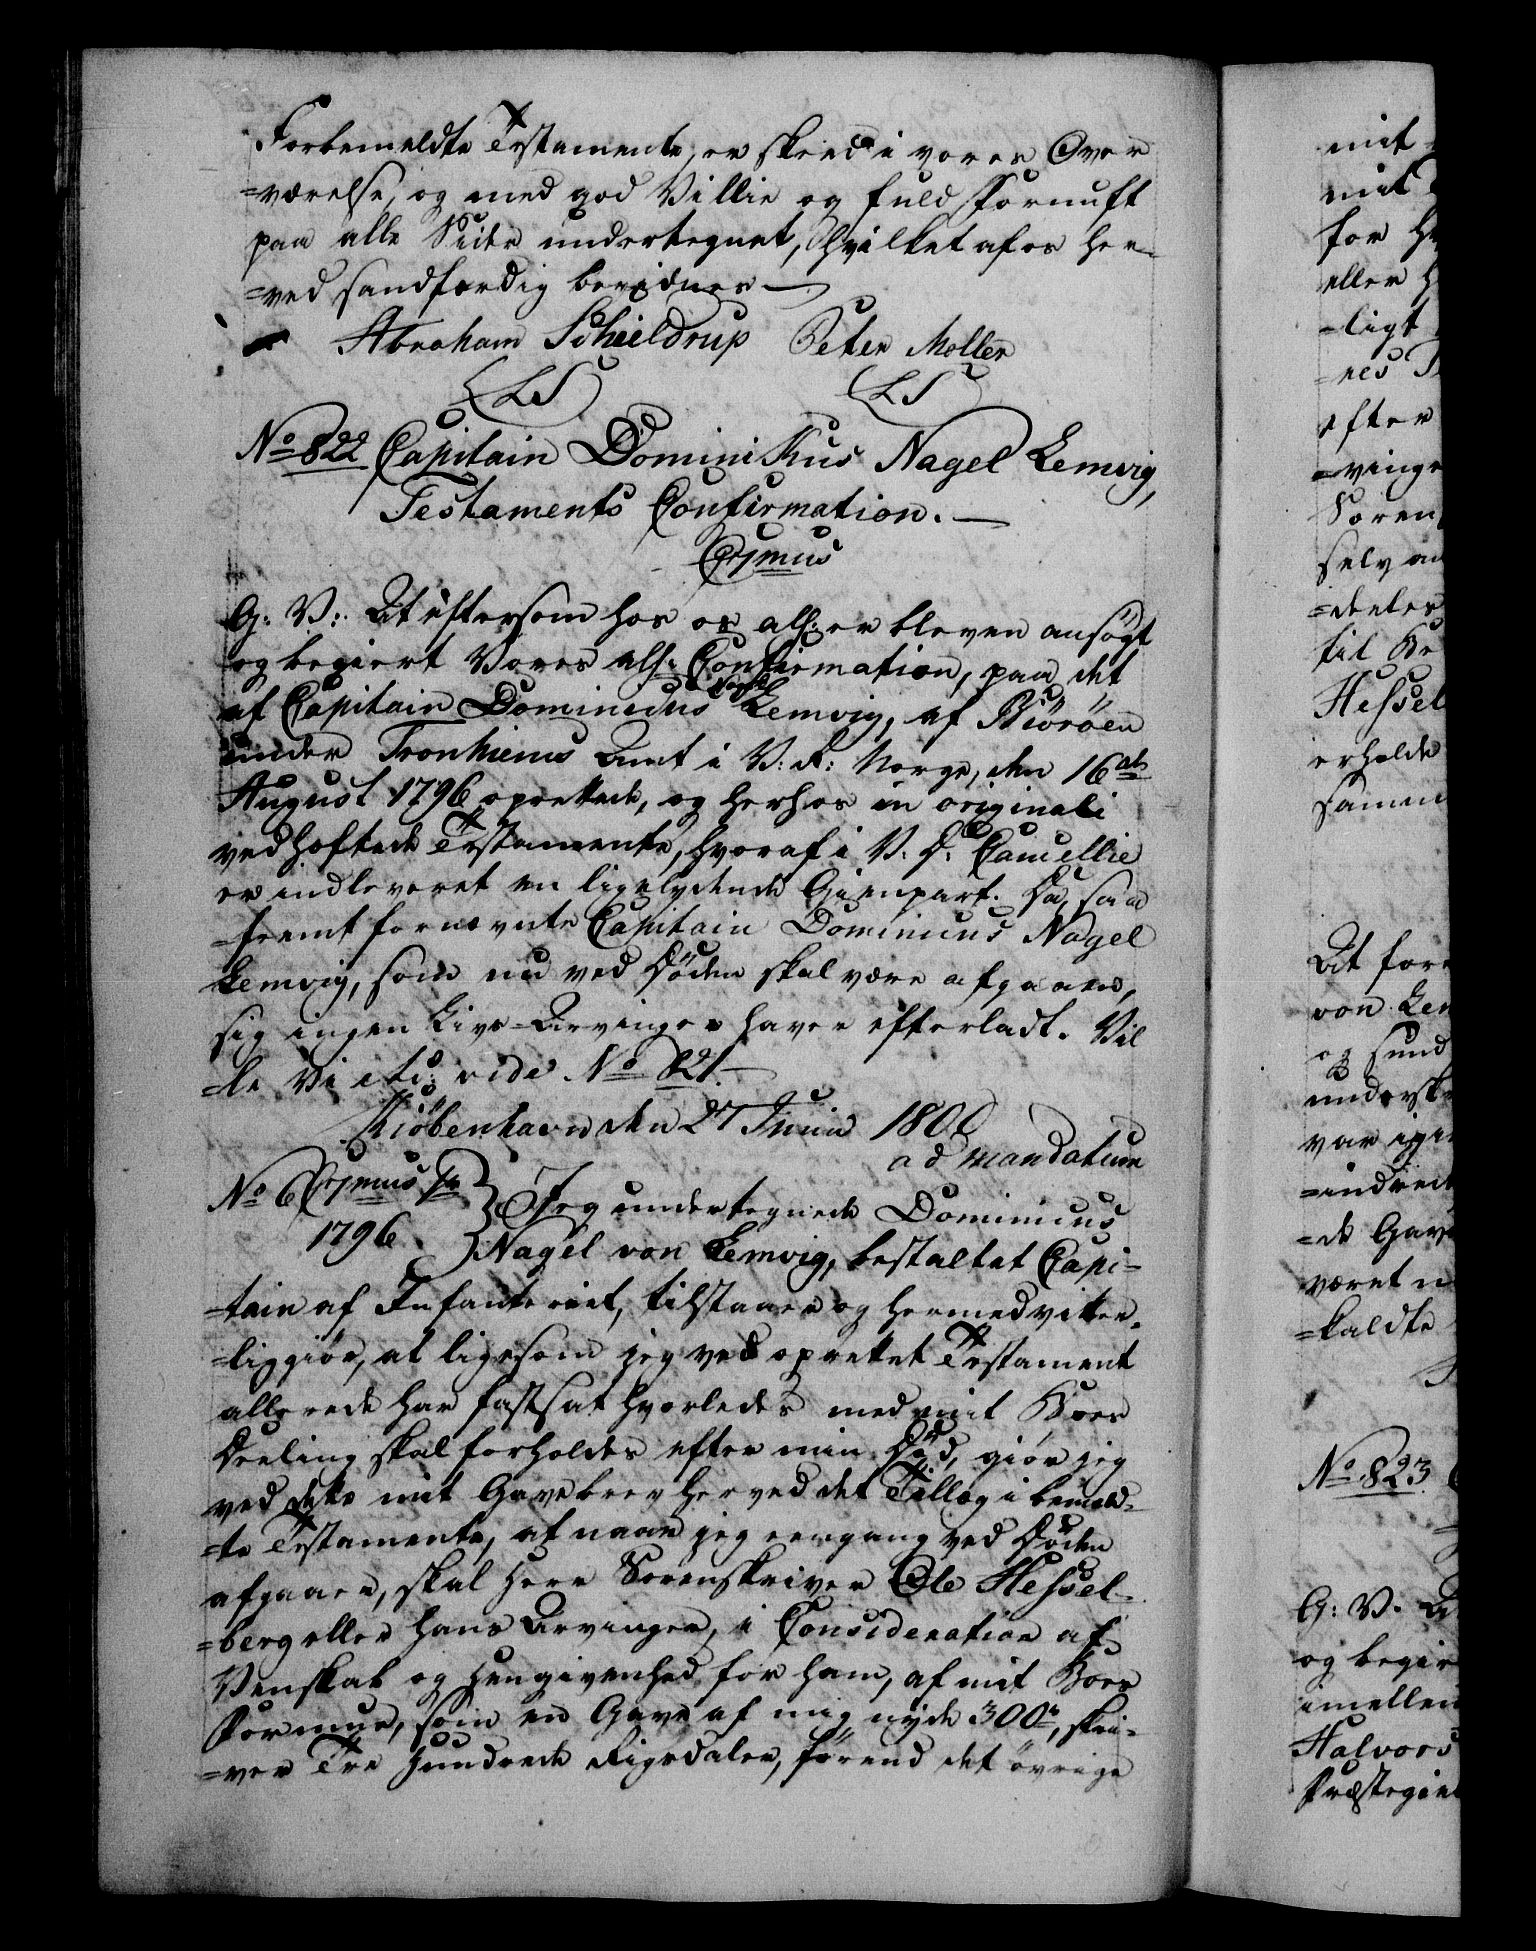 Forbemeldte Testamente, er skeed i vores Over
=værelse, og med god Villie og fuld Fornuft
paa alle Sider undertegnet, Hvilket af os her-
=ved sandfærdig bevidnes
Abraham Schieldrup Peter Møller
(LS) (LS)
No 822 Capitain Dominikus Nagel Lemvig,
Testaments Confirmation.
Cr 7mus
G: V: At eftersom hos os allr: er bleven ansøgt
og begiert Vores allr: Confirmation, paa det
af Capitain Dominicus Nagel Lemvig, af Biöröen
under Tronhiems Amt i V: R: Norge, den 16de
August 1796 oprettede, og herhos in originali
vedhæftede Testamente, hvoraf i V. D: Cancellie
er indleveret en ligelydende Gienpart. Da, saa
=fremt fornævnte Capitain Dominicus Nagel
Lemvig, som nu ved Döden skal være afgaaen,
sig ingen Livs-Arvinger haver efterladt. Vil
=le Vi etc: vide No 821.
Kiöbenhavn den 27 Junii 1800
ad mandatum
No 6 Cr 7mus
1796. Jeg undertegnede Dominicus
Nagel von Lemvig, bestaltet Capi-
=tain af Infanteriet, tilstaaer og hermed vitter-
=liggiör, at ligesom jeg ved oprettet Testament
allerede har fastsat hvorledes med mit Boes
Deeling skal forholdes efter min Död, giör jeg
ved dette mit Gavebrev herved det Tillæg i bemeld-
=te Testamente, at naar jeg eengang ved Döden
afgaaer, skal Herr Sorenskriver Ole Hessel-
=berg eller hans Arvinger, i Consideration af
Venskab og Hengivenhed for ham, af mit Boes
Formue, som en Gave af mig nyde 300r, skri-
=ver Tre Hundrede Rigsdaler, förend det övrige
mit
mit
for H
eller H
=ligt
=nes T
efter
=vinge
Soren
selv an
=deeles
til Be
Hessel
erholde
samm
At fore
von Lem
og sund
undersk
var igie
=indret
=de Gave
været n
=kaldte
No 823
G: V. A
og begie
imellem
Halvors
Præstegie